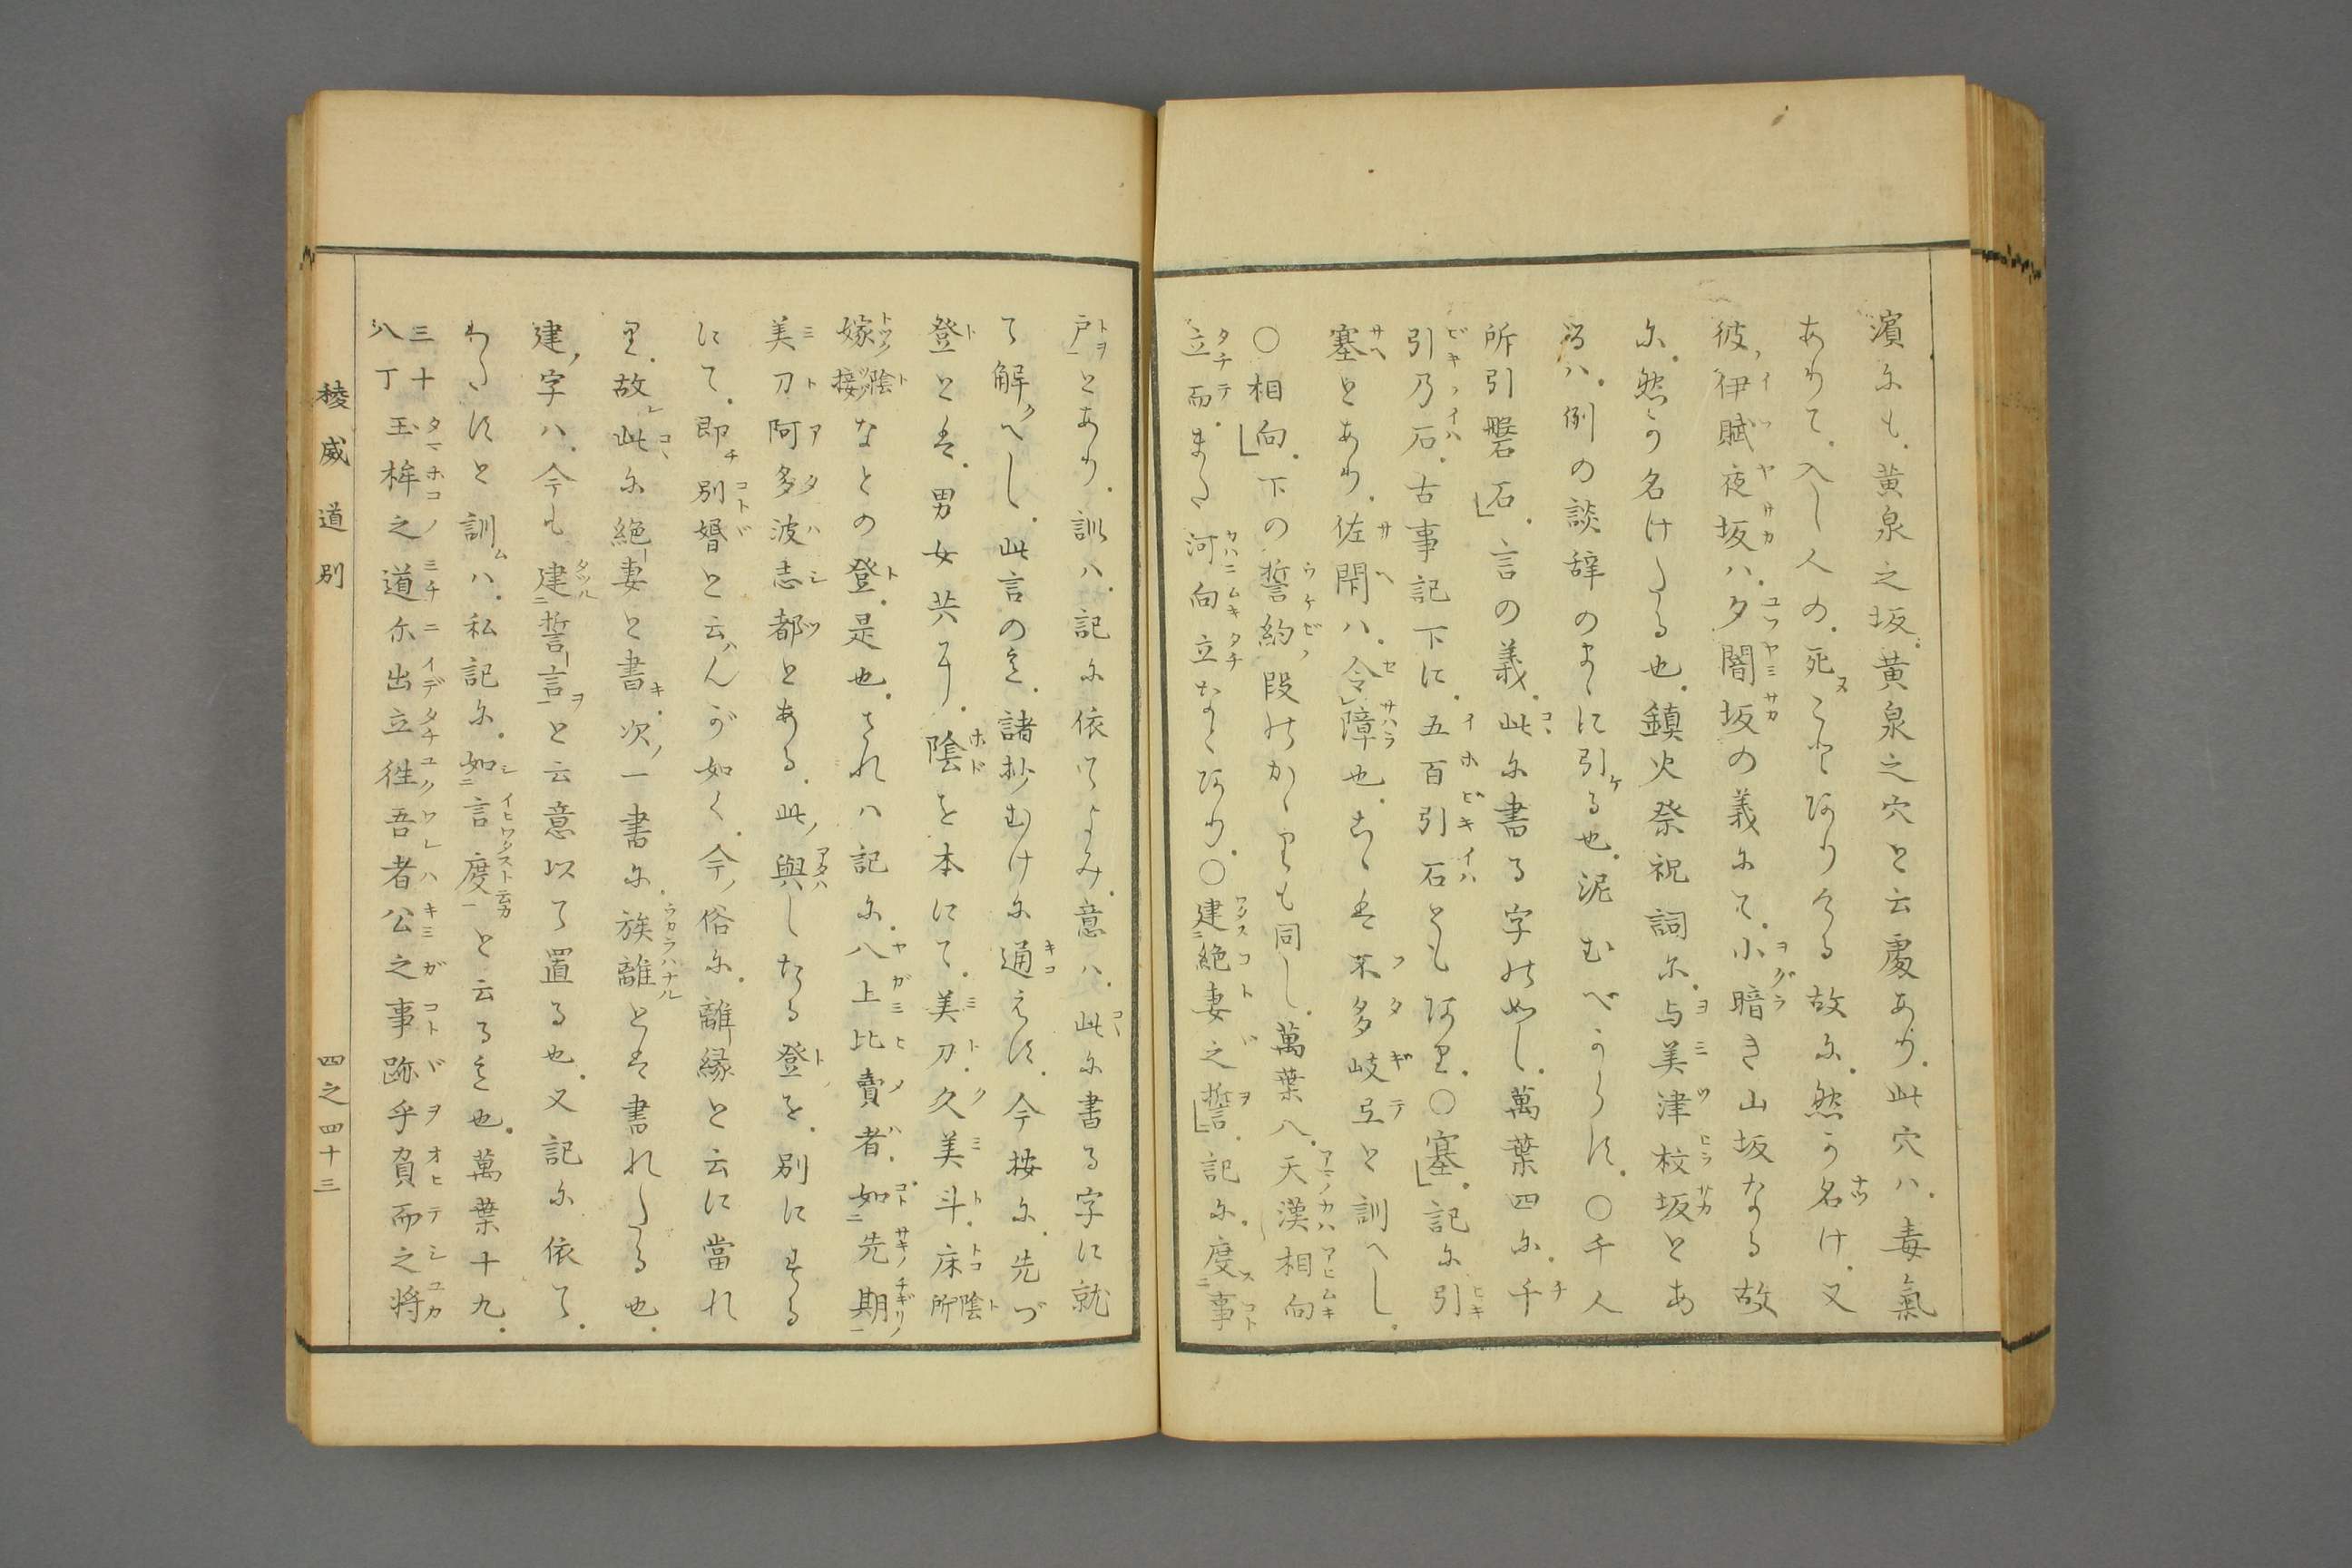 濱にも、黄泉之坂、黄泉之穴と云處あり、此穴ハ、毒氣
ありて、入し人の、死ることありける故に、然か名け、又
彼ノ伊賦夜坂ハ、夕闇坂の義にて、小暗き山坂なる故
に、然か名けたる也、鎮火祭祝詞に、与美津枚坂とあ
るハ、例の談辞のまゝに引ける也、泥むべからず、○千人
所引磐石、言の義、此に書る字の如し、萬葉四に、千
引乃石、古事記下に、五百引石ともあり、○塞、記に引
塞とあり、佐閇ハ、令障也、こゝは不多岐弖と訓へし、
○相向、下の誓約段のかゝりも同し、萬葉八、天漢相向
立而、また河向立なとあり、○建絶妻之誓、記に、度事
戸とあり、訓ハ、記に依てよみ、意ハ、此に書る字に就
て解へし、此言の意、諸抄むけに通えす、今按に、先づ
登とは、男女共に、陰を本にて、美刀、久美斗、床所陰
嫁陰接なとの登、是也、されハ記に、八上比賣者、如先期
美刀阿多波志都とある、此ノ與しなる登を、別にする
にて、即別婚と云んが如く、今ノ俗に、離縁と云に當れ
り、故此に絶妻と書き、次ノ一書に、族離とは書れたる也、
建ノ字ハ、今も建誓言と云意以て置る也、又記に依て、
わたすと訓ハ、私記に、如言度と云る意也、萬葉十九、
三十八丁玉桙之道尓出立徃吾者公之事跡乎負而之将
稜威道別
四之四十三